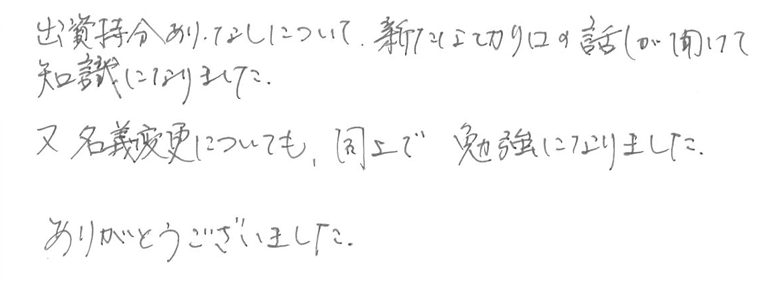 出資持分あり.なしについて.新たな切り口の話しが聞けて
知識になりました.
又 名義変更についても,同上で 勉強になりました.
ありがとうございました.